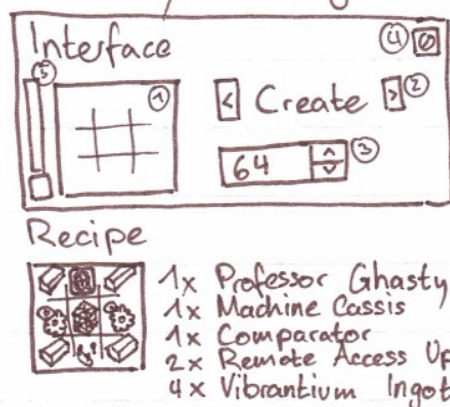 Interface
4
5
1
< Create > 2
64 3
Recipe
1x Professor Ghasty
1x Machine Cassis
1x Comparator
2x Remote Access Up
4x Vibrantium Ingot